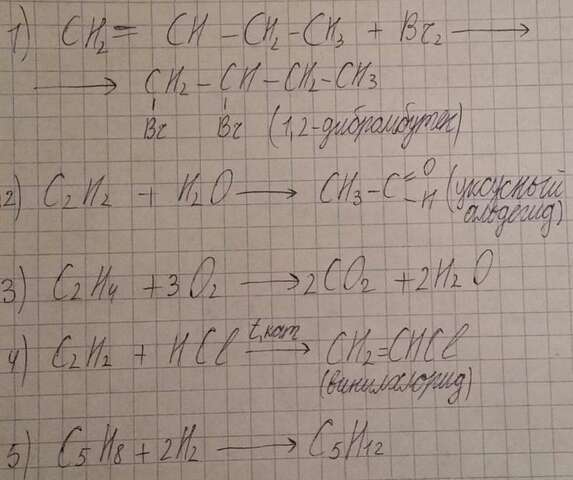 1) CH₂ = CH – CH₂ – CH₃ + Br₂ ⟶
⟶ CH₂ – CH – CH₂ – CH₃
Br Br (1,2-дибромбутен)
2) C₂H₂ + H₂O ⟶ CH₃ – C =O –H (уксусный альдегид)
3) C₂H₄ + 3O₂ ⟶ 2CO₂ + 2H₂O
4) C₂H₂ + HCl t, кат ⟶ CH₂=CHCl
(винилхлорид)
5) C₅H₈ + 2H₂ ⟶ C₅H₁₂